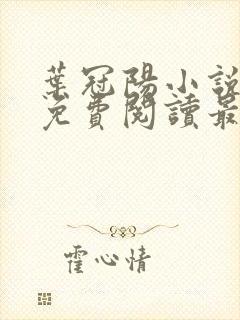 葉冠陽小說
免費閱讀最
霍心情